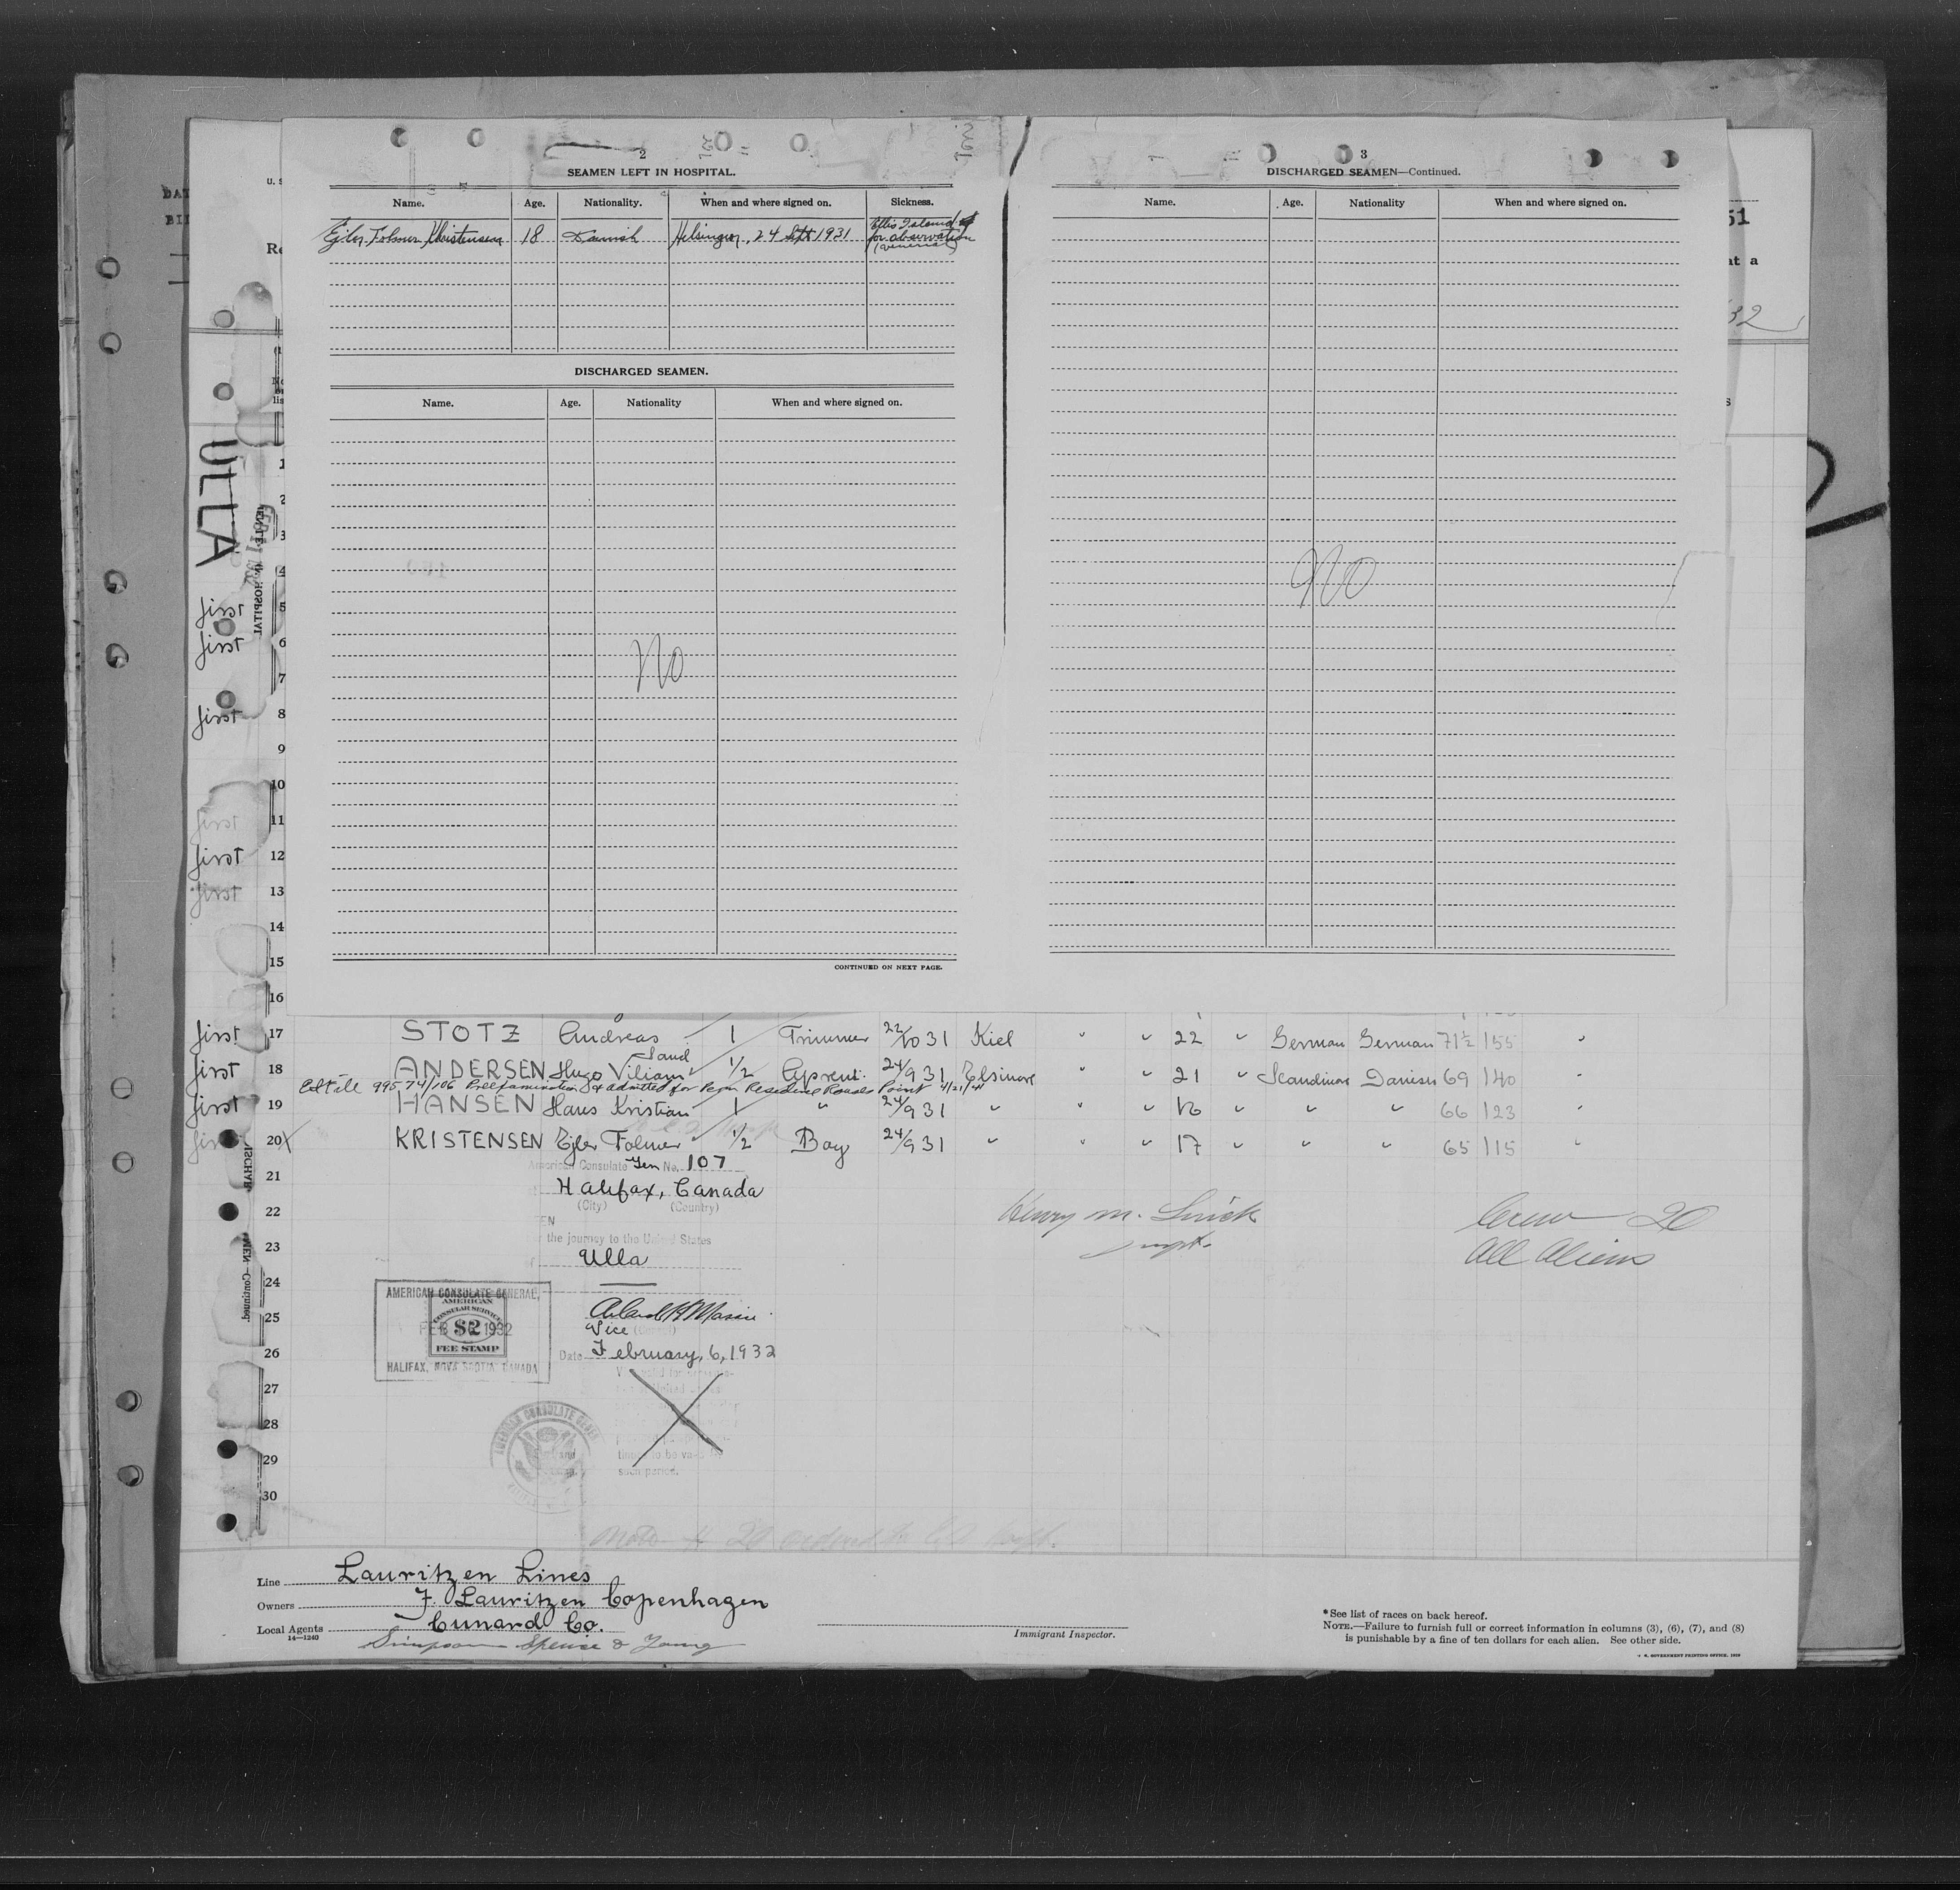 2
SEAMEN LEFT IN HOSPITAL.
Name. Age. Nationality. When and where signed on. Sickness.
Ejler Folmer Christensen 18 Danish Helsingør, 24 Sept 1931 Ellis Island
for observation
(venereal)
DISCHARGED SEAMEN.
Name. Age. Nationality When and where signed on.
No
CONTINUED ON NEXT PAGE.
3
DISCHARGED SEAMEN—Continued.
Name. Age. Nationality When and where signed on.
No
51
at a
32
U. S
DAT
ULLA
first
first
first
first
first
first
1
2
3
4
5
6
7
8
9
10
11
12
13
14
15
16
first 17 STOTZ Andreas 1 Trimmer 22/10 31 Kiel " " 22 " German German 71½ 155 "
first 18 ANDERSEN Hugo Viliam 1/2 Aprent. 24/9 31 Elsinore " " 21 " Scandinav Danish 69 140 "
995 74/106 Preexamination & admitted for Perm Residence Rouses Point 4/21/41
first 19 HANSEN Hans Kristian 1 " 24/9 31 " " " 18 " " " 66 123 "
first 20 X KRISTENSEN Ejler Folmer 1/2 Boy 24/9 31 " " " 17 " " " 65 115 "
American Consulate Gen No. 107
21
Halifax, Canada
(City) (Country)
22
Henry M.
Crew 20
All Aliens
23
the journey to the United States
Ulla
24
AMERICAN CONSULATE GENERAL,
AMERICAN
CONSULAR SERVICE
$2
FEB 6 1932
FEE STAMP
HALIFAX, NOVA SCOTIA, CANADA
25
Vice (Consul)
26
Date February, 6, 1932
27
28
AMERICAN CONSULATE GENERAL
29
such period.
30
Line Lauritzen Lines
Owners J. Lauritzen Copenhagen
Local Agents Cunard Co.
14—1240
Simpson Spence & Young
Immigrant Inspector.
*See list of races on back hereof.
NOTE.—Failure to furnish full or correct information in columns (3), (6), (7), and (8)
is punishable by a fine of ten dollars for each alien. See other side.